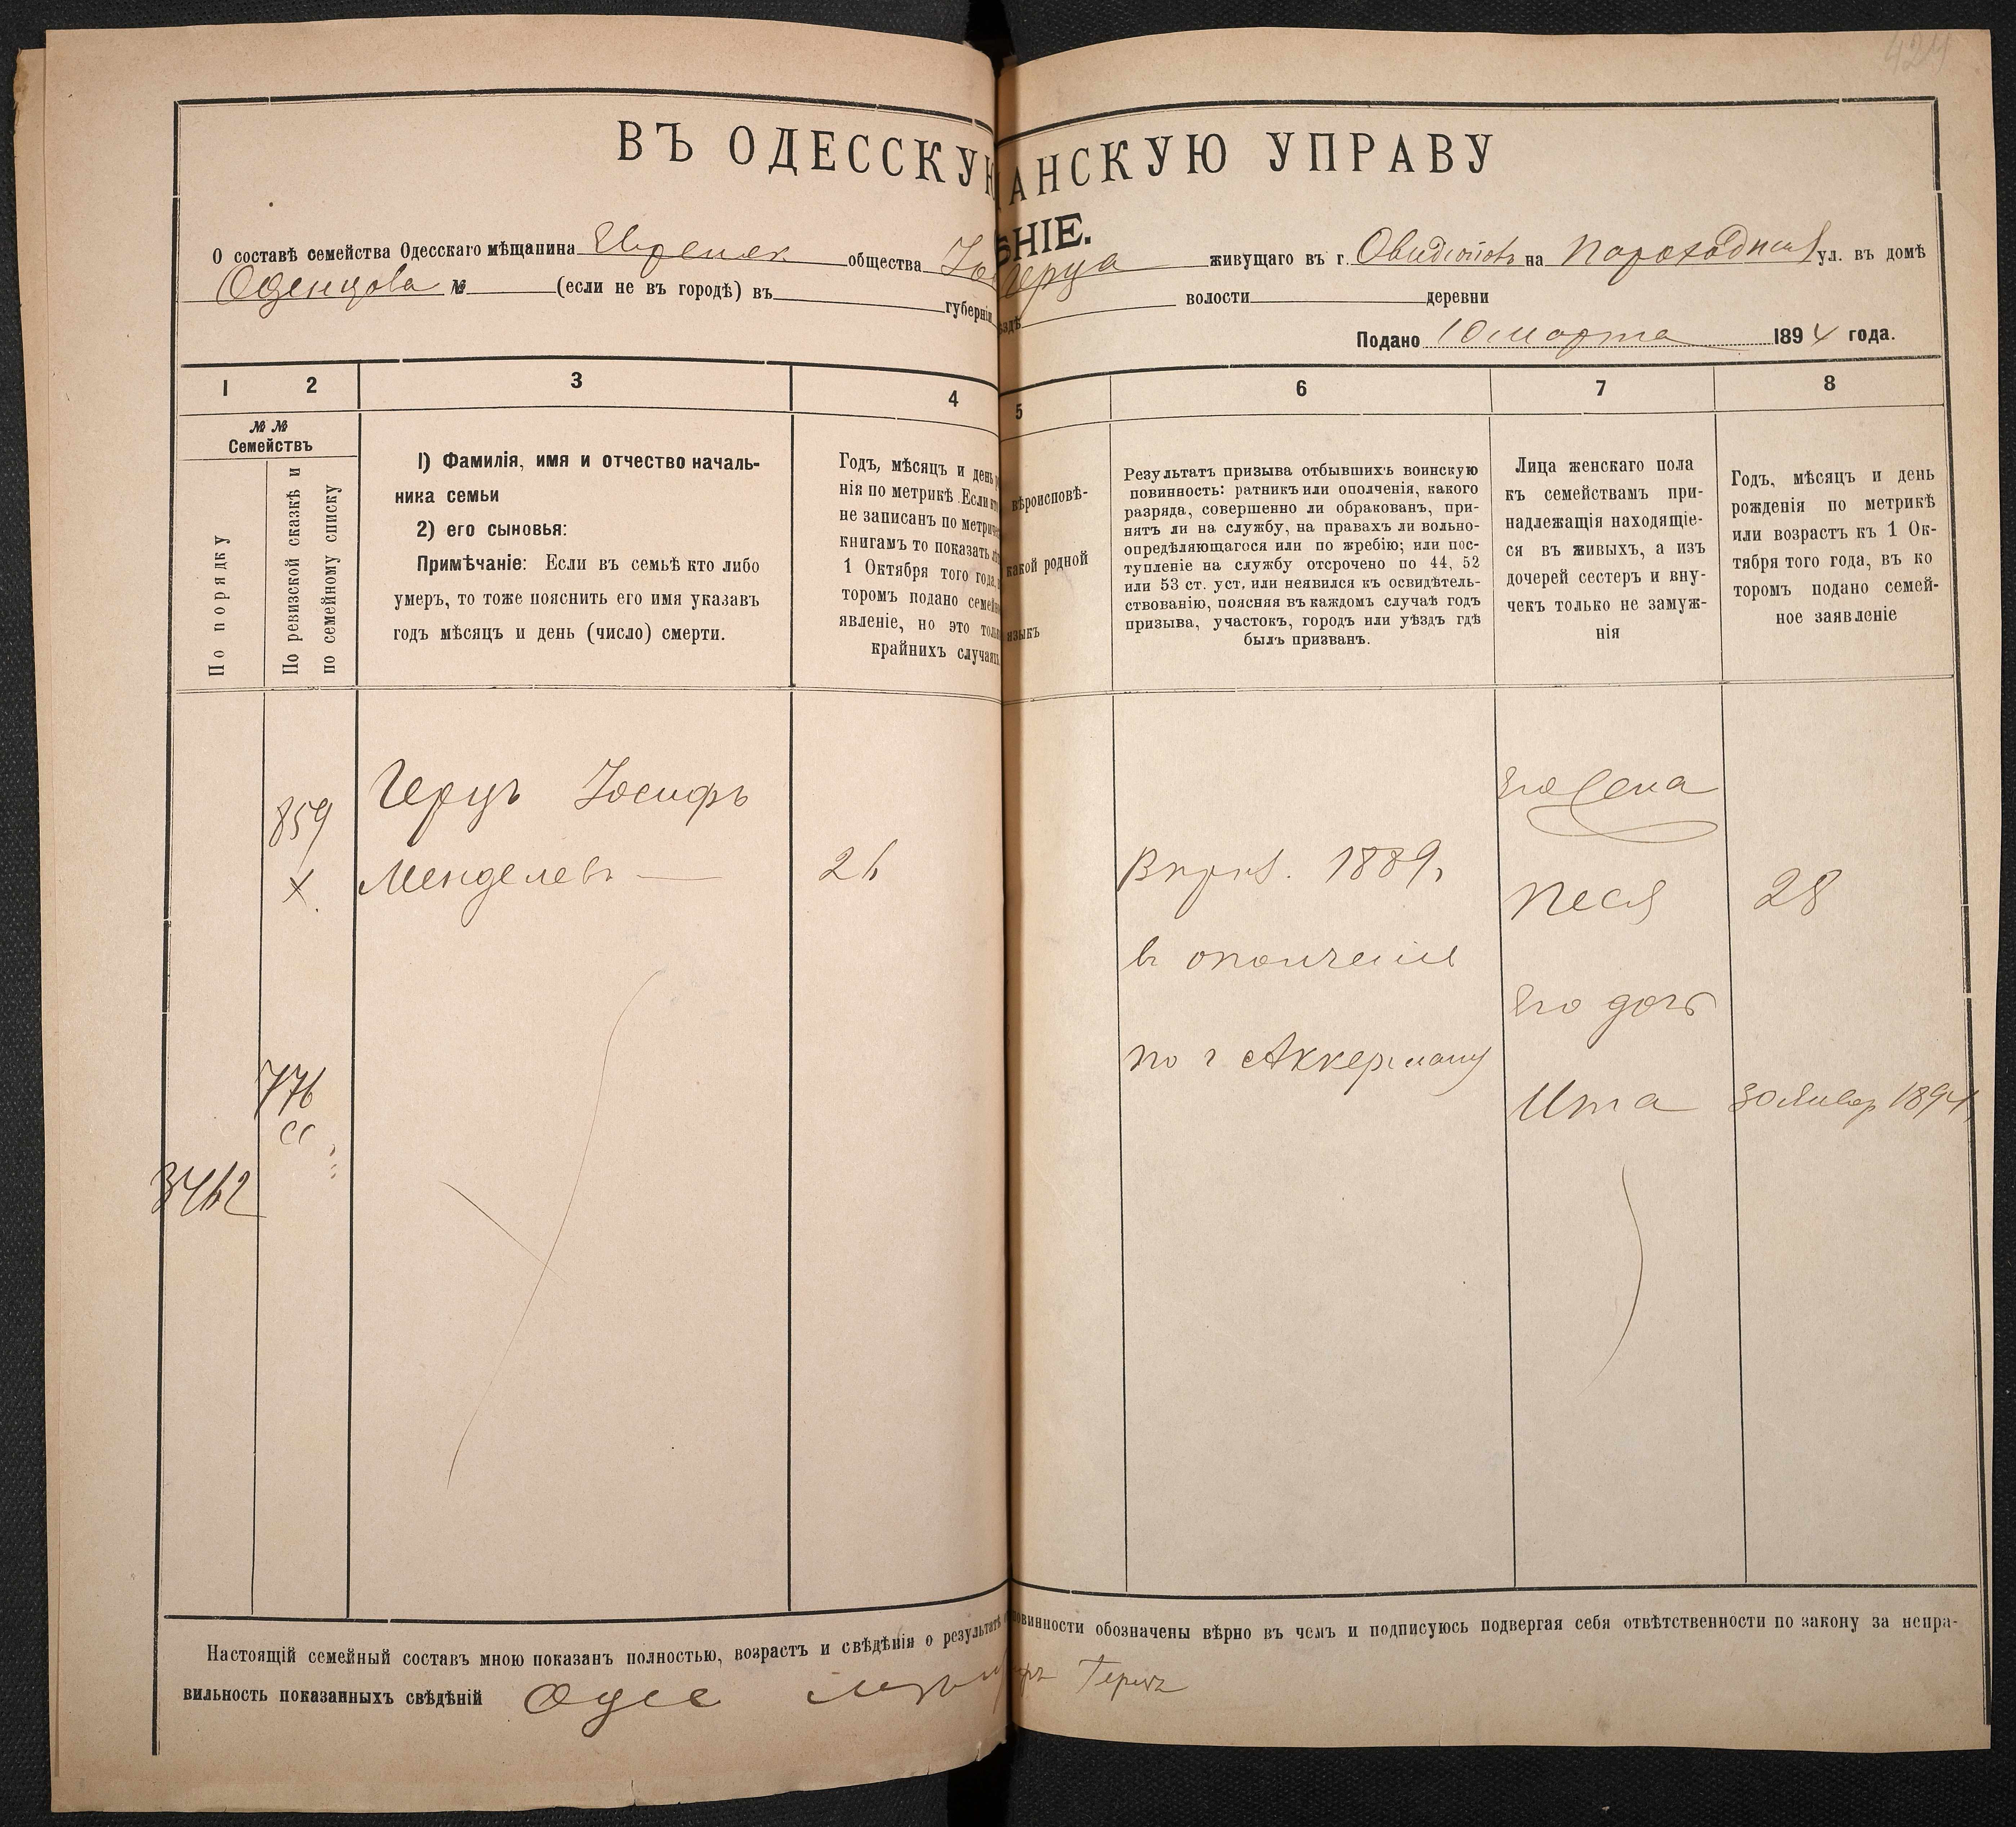 424
ВЪ ОДЕССКУЮ
ЩАНСКУЮ УПРАВУ
ѢНІЕ.
О составѣ семейства Одесскаго мѣщанина Евреиск. общества Іос Герца живущаго въ г. Овидіополь на Пароходной ул. въ домѣ
Оденцова № (если не въ городѣ) въ губерніи ѣздѣ волости деревни
Подано 10 марта 1894 года.
1 2 3 4 5 6 7 8
№ №
Семействъ
По порядку
По ревизской сказкѣ и
по семейному списку
1) Фамилія, имя и отчество началь-
ника семьи
2) его сыновья:
Примѣчаніе: Если въ семьѣ кто либо
умеръ, то тоже пояснить его имя указавъ
годъ мѣсяцъ и день (число) смерти.
Годъ, мѣсяцъ и день
нія по метрикѣ. Если кто
не записанъ по метри
книгамъ то показать
1 Октября того года,
торомъ подано семей
явленіе, но это толь
крайнихъ случаяхъ
вѣроисповѣ-
какой родной
языкъ
Результатъ призыва отбывшихъ воинскую
повинность: ратникъ или ополченія, какого
разряда, совершенно ли обракованъ, при-
нятъ ли на службу, на правахъ ли вольно-
опредѣляющагося или по жребію; или пос-
тупленіе на службу отсрочено по 44, 52
или 53 ст. уст. или неявился къ освидѣтель-
ствованію, поясняя въ каждомъ случаѣ годъ
призыва, участокъ, городъ или уѣздъ гдѣ
былъ призванъ.
Лица женскаго пола
къ семействамъ при-
надлежащія находящіе-
ся въ живыхъ, а изъ
дочерей сестеръ и вну-
чекъ только не замуж-
нія
Годъ, мѣсяцъ и день
рожденія по метрикѣ
или возрастъ къ 1 Ок-
тября того года, въ ко
торомъ подано семей-
ное заявленіе
859
Х
Герцъ Іосифъ
Менделевъ — 26
776
сс
3462
В приз. 1889 г.
въ ополченіе
по г Аккерману
Его жена
Песя 28
Его дочь
Ита 30 Январ 1894
Настоящій семейный составъ мною показанъ полностью, возрастъ и свѣдѣнія о результатѣ повинности обозначены вѣрно въ чемъ и подписуюсь подвергая себя отвѣтственности по закону за непра-
вильность показанныхъ свѣдѣній Одес Герцъ